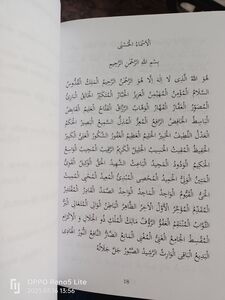 الاسماء الحسنى
بِسْمِ اللهِ الرَّحْمٰنِ الرَّحِيْمِ
هُوَ اللهُ الَّذِى لَا اِلٰهَ اِلَّا هُوَ الرَّحْمٰنُ الرَّحِيْمُ الْمَلِكُ الْقُدُّوْسُ
السَّلَامُ الْمُؤْمِنُ الْمُهَيْمِنُ الْعَزِيْزُ الْجَبَّارُ الْمُتَكَبِّرُ الْخَالِقُ الْبَارِئُ
الْمُصَوِّرُ الْغَفَّارُ الْقَهَّارُ الْوَهَّابُ الرَّزَّاقُ الْفَتَّاحُ الْعَلِيْمُ الْقَابِضُ
الْبَاسِطُ الْخَافِضُ الرَّافِعُ الْمُعِزُّ الْمُذِلُّ السَّمِيْعُ الْبَصِيْرُ الْحَكَمُ
الْعَدْلُ اللَّطِيْفُ الْخَبِيْرُ الْحَلِيْمُ الْعَظِيْمُ الْغَفُوْرُ الشَّكُوْرُ الْعَلِىُّ الْكَبِيْرُ
الْحَفِيْظُ الْمُقِيْتُ الْحَسِيْبُ الْجَلِيْلُ الْكَرِيْمُ الرَّقِيْبُ الْمُجِيْبُ الْوَاسِعُ
الْحَكِيْمُ الْوَدُوْدُ الْمَجِيْدُ الْبَاعِثُ الشَّهِيْدُ الْحَقُّ الْوَكِيْلُ الْقَوِىُّ
الْمَتِيْنُ الْوَلِىُّ الْحَمِيْدُ الْمُحْصِى الْمُبْدِئُ الْمُعِيْدُ الْمُحْيِى الْمُمِيْتُ
الْحَىُّ الْقَيُّوْمُ الْوَاجِدُ الْمَاجِدُ الْوَاحِدُ الْاَحَدُ الصَّمَدُ الْقَادِرُ الْمُقْتَدِرُ
الْمُقَدِّمُ الْمُؤَخِّرُ الْاَوَّلُ الْاٰخِرُ الظَّاهِرُ الْبَاطِنُ الْوَالِى الْمُتَعَالِ الْبَرُّ
التَّوَّابُ الْمُنْتَقِمُ الْعَفُوُّ الرَّؤُوْفُ مَالِكُ الْمُلْكِ ذُو الْجَلَالِ وَ الْاِكْرَامِ
الْمُقْسِطُ الْجَامِعُ الْغَنِىُّ الْمُغْنِى الْمَانِعُ الضَّارُّ النَّافِعُ النُّوْرُ الْهَادِى
الْبَدِيْعُ الْبَاقِى الْوَارِثُ الرَّشِيْدُ الصَّبُوْرُ جَلَّ جَلَالُهُ
18
OPPO Reno5 Lite